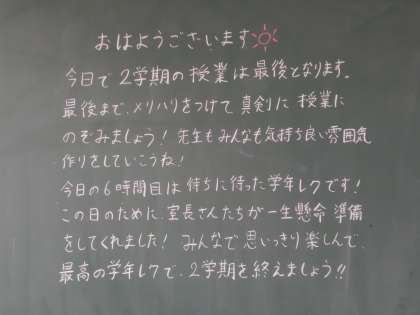 おはようございます
今日で2学期の授業は最後となります。
最後まで、メリハリをつけて真剣に授業に
のぞみましょう！先生もみんなも気持ち良い雰囲気
作りをしていこうね！
今日の6時間目は待ちに待った学年レクです！
この日のために、室長さんたちが一生懸命準備
をしてくれました！みんなで思いっきり楽しんで、
最高の学年レクで、2学期を終えましょう!!